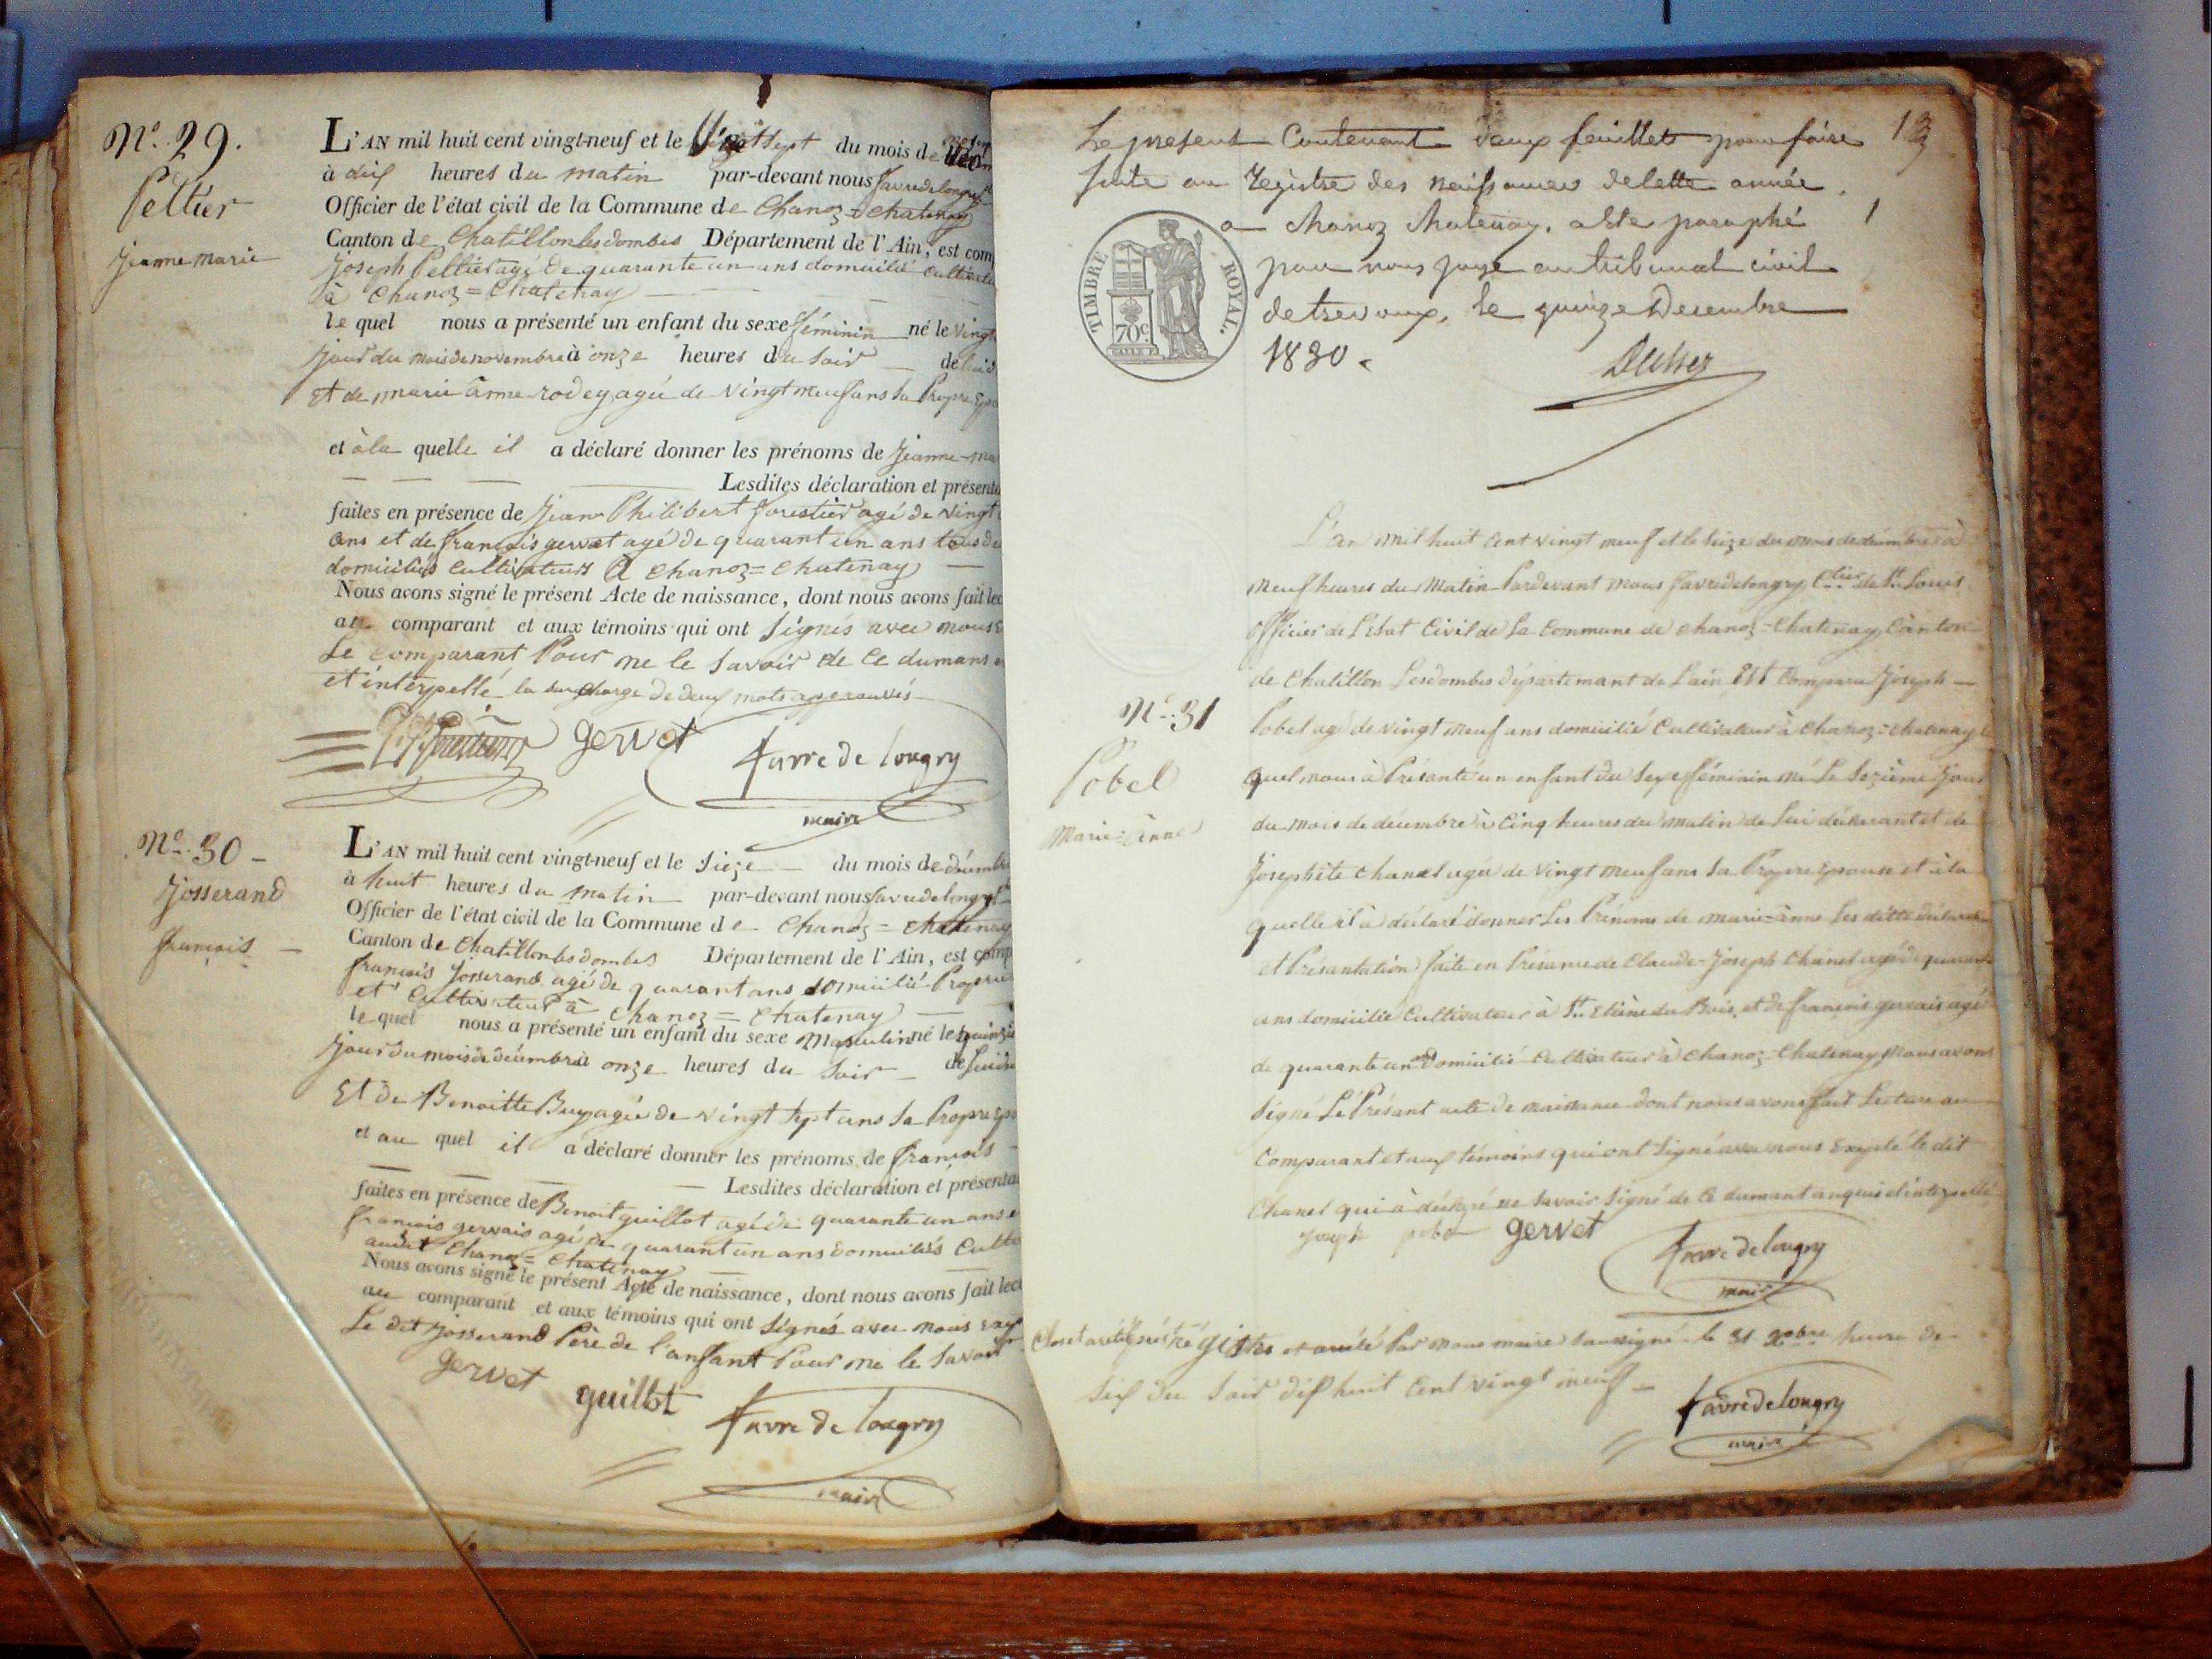 N.o 29.
Peltier
Jeanne marie
L'AN mil huit cent vingt-neuf et le Vingt Sept du mois de
à dix heures du matin par-devant nous favredelongry
Officier de l'état civil de la Commune de Chanoz=chatenay
Canton de Chatillonlesdombes Département de l'Ain, est com
Joseph Peltier agé de quarante un ans domicilié Cultivate
à Chanoz=Chatenay
le quel nous a présenté un enfant du sexe féminin né le Vingt
Jour du mois de novembre à onze heures du Soir de lui d
Et de marie anne rodey agée de Vingt neuf ans Sa Propre Epo
et à la quelle il a déclaré donner les prénoms de Jeanne-ma
Lesdites déclaration et présenta
faites en présence de Jean Philibert forestier agé de Vingt
ans et de françois gervet agé de quarant un ans tous de
domiciliés Cultivateurs à Chanoz=Chatenay
Nous avons signé le présent Acte de naissance, dont nous avons fait lec
au comparant et aux témoins qui ont Signés avec nous E
Le comparant Pour ne le Savoir de Ce dumans
et interpellé la Surcharge de deux mots approuvés
gervet
favre de longry
maire
N.o 30
Josserand
françois
L'AN mil huit cent vingt-neuf et le Sieze du mois de décembr
à huit heures du matin par-devant nous favredelongry
Officier de l'état civil de la Commune de Chanoz=Chatenay
Canton de Chatillonlesdombes Département de l'Ain, est comp
françois Josserand agé de quarant ans domicilié Proprie
et Cultivateur à Chanoz=Chatenay
le quel nous a présenté un enfant du sexe Masculin né le quinziè
Jour du mois de décembre à onze heures du Soir de lui d
Et de Benoitte Buy agée de vingt Sept ans Sa Propre Epo
et au quel il a déclaré donner les prénoms de françois
Lesdites déclaration et présenta
faites en présence de Benoit guillot agé de quarante un ans e
françois gervais agé de quarant un ans domiciliés Culti
audit Chanoz=Chatenay
Nous avons signé le présent Acte de naissance, dont nous avons fait lec
au comparant et aux témoins qui ont Signés avec nous exep
Le dit Josserand Père de l'anfant Pour ne le Savoir
gervet guillot
favre de longry
maire
Le present Contenant deux feuillets pour faire
suite au Registre des naissances de cette année
a chanoz chatenay. a été paraphé 1
par nous juge au tribunal civil
de trevoux, le quinze Decembre
1830.
TIMBRE ROYAL.
70c
L'an mil huit Cent vingt neuf et le Seize du mois de décembre à
neuf heures du matin Pardevant nous favredelongry Clier de St. Louis
officier de L'Etat Civil de La Commune de Chanoz-Chatenay Canton
de Chatillon Lesdombes département de L'ain Est Comparu Joseph
N.o 31
Pobel
Marie=Anne
Pobel agé de vingt neuf ans domicilié Cultivateur à Chanoz=Chatenay le
quel nous à Présanté un enfant du Sexe féminin né Le Sezième Jour
du mois de décembre à Cinq heures du matin de Lui déclarant et de
Josephte Chanel agée de vingt neuf ans Sa Propre Epouse et à la
quelle il à déclaré donner Les Prénoms de marie=anne Les ditte déclaration
et Présantation faite en Présance de Claude-Joseph Chanel agé de quarante
ans domicilié Cultivateur à St. Etiène du Bois, et de françois gervais agé
de quarante un ans domicilié Cultivateur à Chanoz-Chatenay Nous avons
Signé Le Présant acte de naissance dont nous avons fait Lecture au
Comparant et aux témoins qui ont Signé avec nous Exepté le dit
Chanel qui à déclaré ne Savoir Signé de Ce dumant anquis et interpellé
Joseph pobel gervet
favre delongry
maire
Clos et arété Présant régistre et arrété Par nous maire Soussigné le 31 Xbre heure de
Six du Soir dix huit Cent vingt neuf
favredelongry
maire